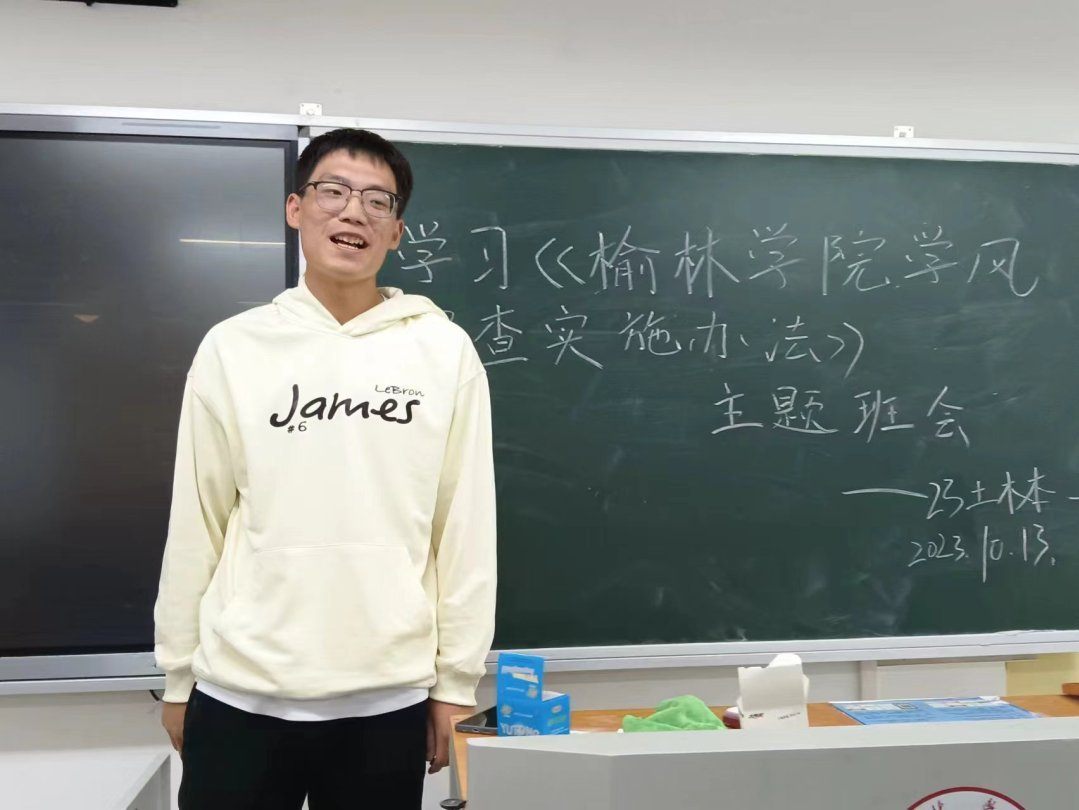 学习《榆林学院学风
查实施办法》
主题班会
——23土木本
2023.10.13.
LeBron
James
#6